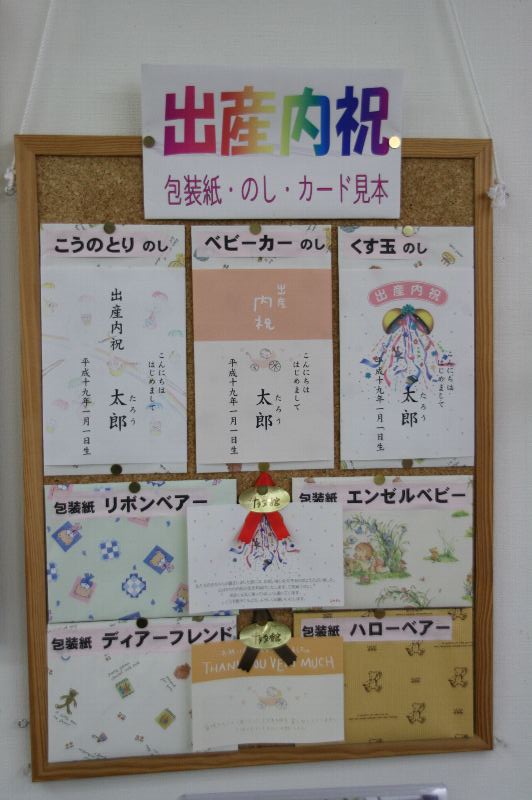 出産内祝
包装紙・のし・カード見本
こうのとり のし
出産内祝
こんにちは
はじめまして
たろう
太郎
平成十九年一月一日生
ベビーカー のし
出産
内祝
こんにちは
はじめまして
たろう
太郎
平成十九年一月一日生
くす玉 のし
出産内祝
こんにちは
はじめまして
たろう
太郎
平成十九年一月一日生
包装紙 リボンベアー
包装紙 エンゼルベビー
包装紙 ディアーフレンド
THANK YOU VERY MUCH
包装紙 ハローベアー